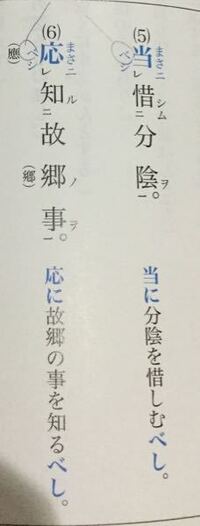 (5) 当まさニベシレ惜シム二分陰ヲ一。 当に分陰を惜しむべし。
(6) 応まさニベシレ知ル二故郷ノ事ヲ一。 応に故郷の事を知るべし。
(應) (鄕)